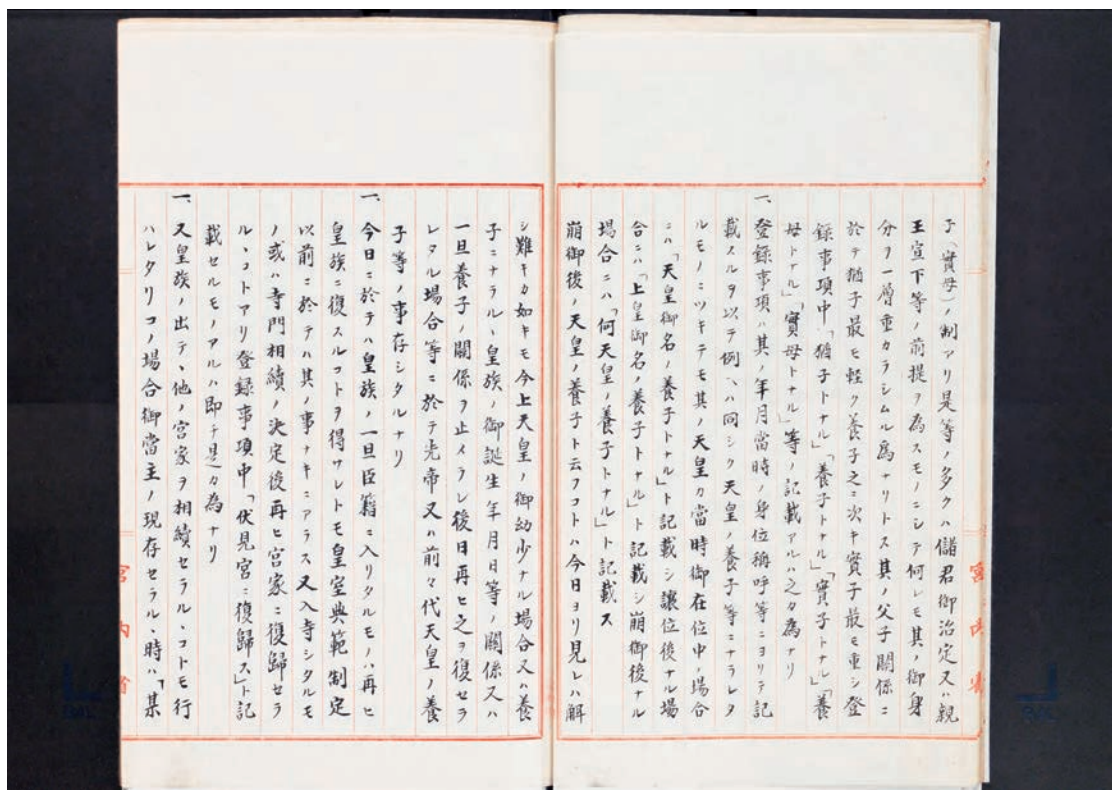 子（實母）ノ制アリ是等ノ多クハ儲君御治定又ハ親
王宣下等ノ前提ヲ為スモノニシテ何レモ其ノ御身
分ヲ一層重カラシムル為ナリトス其ノ父子關係ニ
於テ猶子最モ軽ク養子之ニ次キ實子最モ重シ登
録事項中「猶子トナル」「養子トナル」「實子トナル」「養
母トナル」「實母トナル」等ノ記載アルハ之カ為ナリ
一、登録事項ハ其ノ年月當時ノ身位稱呼等ニヨリテ記
載スルヲ以テ例ヘハ同シク天皇ノ養子等ニナラレタ
ルモノニツキテモ其ノ天皇カ當時御在位中ノ場合
ニハ「天皇御名ノ養子トナル」ト記載シ讓位後ナル場
合ニハ「上皇御名ノ養子トナル」ト記載シ崩御後ナル
場合ニハ「何天皇ノ養子トナル」ト記載ス
崩御後ノ天皇ノ養子ト云フコトハ今日ヨリ見レハ解
シ難キカ如キモ今上天皇ノ御幼少ナル場合又ハ養
子ニナラルヽ皇族ノ御誕生年月日等ノ關係又ハ
一旦養子ノ關係ヲ止メラレ後日再ヒ之ヲ復セラ
レタル場合等ニ於テ先帝又ハ前々代天皇ノ養
子等ノ事存シタルナリ
一、今日ニ於テハ皇族ノ一旦臣籍ニ入リタルモノハ再ヒ
皇族ニ復スルコトヲ得サレトモ皇室典範制定
以前ニ於テハ其ノ事ナキニアラス又入寺シタルモ
ノ或ハ寺門相續ノ決定後再ヒ宮家ニ復歸セラ
ルヽコトアリ登録事項中「伏見宮ニ復歸ス」ト記
載セルモノアルハ即チ是カ為ナリ
一、又皇族ノ出テヽ他ノ宮家ヲ相續セラルヽコトモ行
ハレタリコノ場合御當主ノ現存セラルヽ時ハ「某
宮内省
宮内省